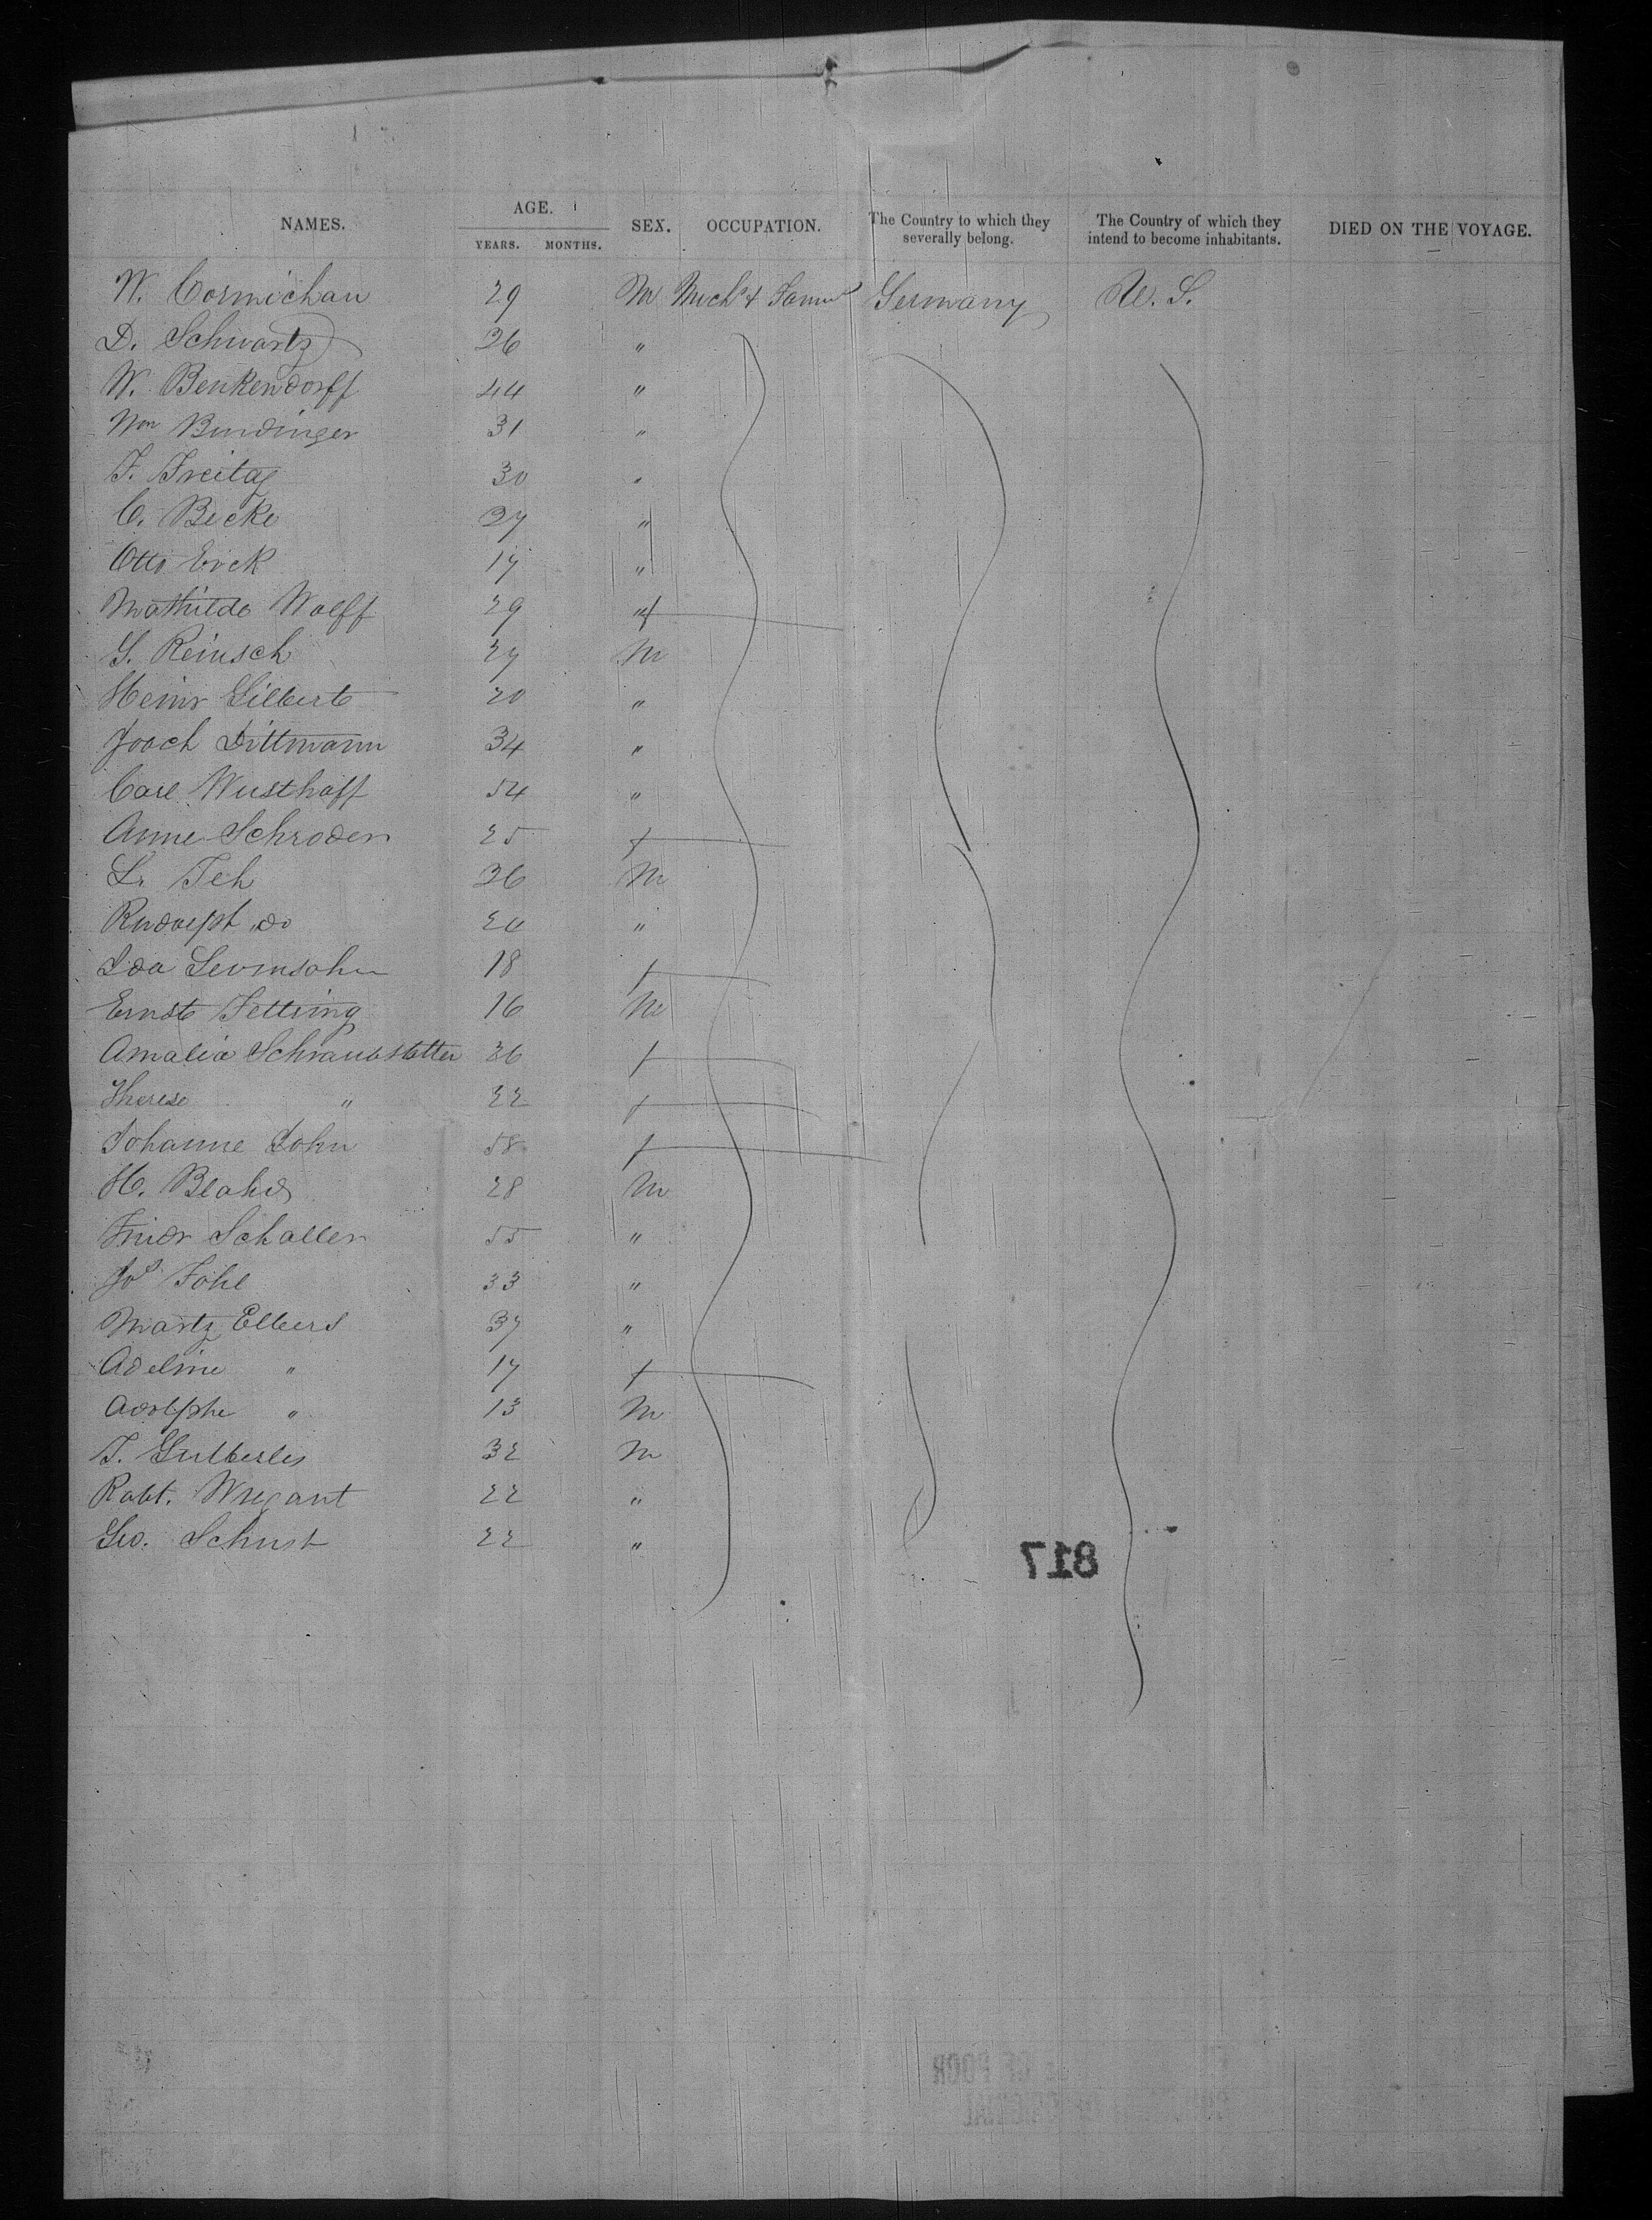 NAMES. AGE. SEX. OCCUPATION. The Country to which they severally belong. The Country of which they intend to become inhabitants. DIED ON THE VOYAGE.
YEARS. MONTHS.
W. Cormichan 29 M Mech & Farmr Germany U. S.
D. Schwartz 36 "
W. Benkendorff 44 "
Wm Bindinger 31 "
F. Freitag 30 "
C. Becke 37 "
Otto Eick 17 "
Mathilde Wolff 29 f
G. Reinsch 27 M
Heinr Gilbert 20 "
Joach Dittmann 34 "
Carl Wusthoff 54 "
Anne Schroder 25 f
L. Feh 36 M
Rudolph do 20 "
Ida Levinsohn 18 f
Ernst Fetting 16 M
Amalia Schraubstetter 36 f
Therese " 22 f
Johanne John 58 f
H. Blahd 28 M
Friedr Schaller 55 "
Jos Fohl 33 "
Martz Elbers 37 "
Adeline " 17 f
Adolphe " 13 M
T. 32 M
Robt. 22 "
Geo. Schust 22 "
817